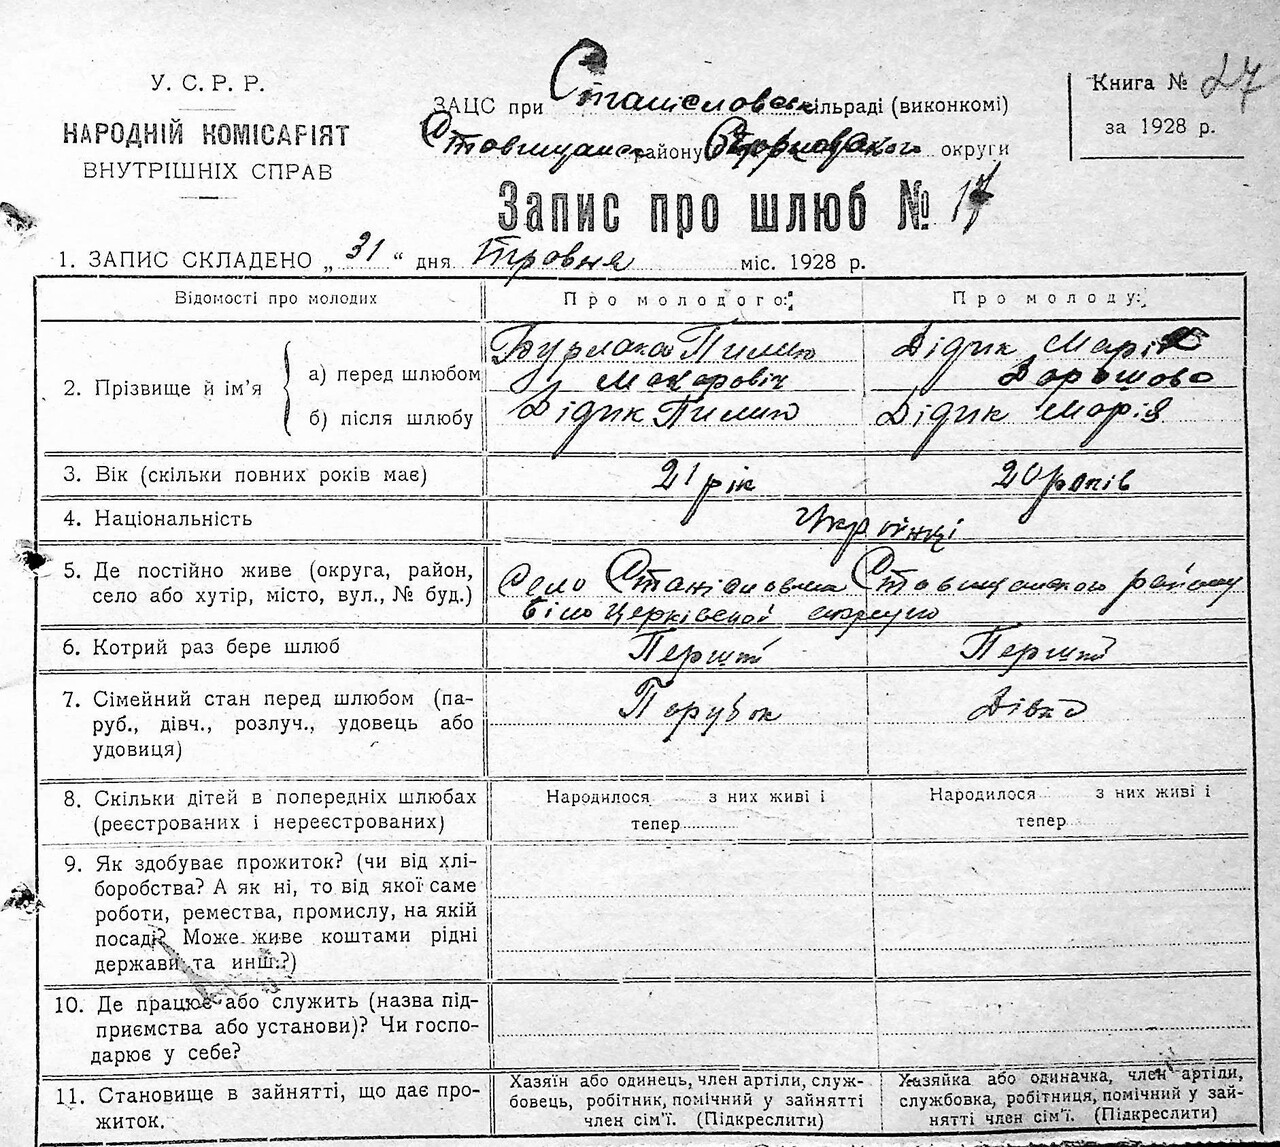 У. С. Р. Р.
НАРОДНІЙ КОМІСАРІЯТ
ВНУТРІШНІХ СПРАВ
ЗАЦС при Станіславськ сільраді (виконкомі)
Ставищанс району округи
Книга № 27
за 1928 р.
Запис про шлюб № 17
1. ЗАПИС СКЛАДЕНО „ 31 “ дня Тровня міс. 1928 р.
Відомості про молодих Про молодого: Про молоду:
2. Прізвище й ім’я
а) перед шлюбом Бурлака Пилип Макаровіч Дідик Марія
б) після шлюбу Дідик Пилип Дідик Марія
3. Вік (скільки повних років має) 21 рік 20 років
4. Національність Українці
5. Де постійно живе (округа, район, село або хутір, місто, вул., № буд.) Село Станіславка Ставищанського району
Білоцерківської округи
6. Котрий раз бере шлюб Перший Перший
7. Сімейний стан перед шлюбом (па-
руб., дівч., розлуч., удовець або
удовиця) Парубок Дівка
8. Скільки дітей в попередніх шлюбах
(реєстрованих і нереєстрованих)
Народилося з них живі і
тепер
Народилося з них живі і
тепер
9. Як здобуває прожиток? (чи від хлі-
боробства? А як ні, то від якої саме
роботи, ремества, промислу, на якій
посаді? Може живе коштами рідні
держави та инш.?)
10. Де працює або служить (назва під-
приємства або установи)? Чи госпо-
дарює у себе?
11. Становище в зайнятті, що дає про-
житок.
Хазяїн або одинець, член артіли, служ-
бовець, робітник, помічний у зайнятті
член сім’ї. (Підкреслити)
Хазяйка або одиначка, член артіли,
службовка, робітниця, помічний у зай-
нятті член сім’ї. (Підкреслити)